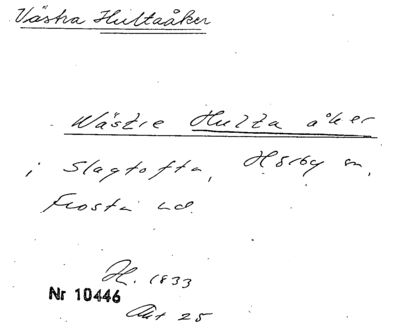 Västra Hultaåker
Wästre Hulta åker
i Slagtofta, Hörby sn,
Frosta hd.
H. 1833
Nr 10446
Akt 25